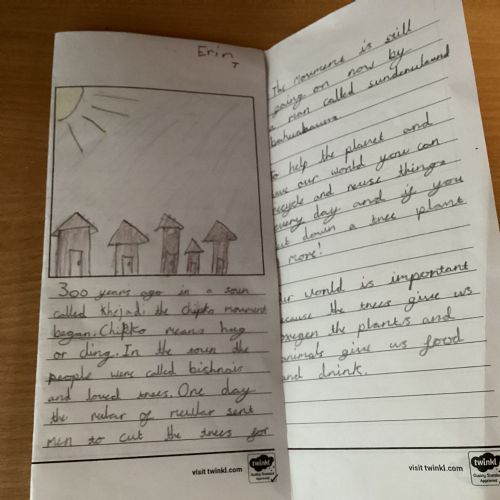 Erin
T
300 years ago in a toun
called Khejadi the chipko moument
began. Chipko means hug
or cling. In the toun the
people were called bishnois
and loved trees. One day
the rular of
sent
men to cut the trees for
visit twinkl.com
twinkl
Quality Standard
Approved
The moument is still
going on now by
a man called
to help the planet and
save our world you can
recycle and reuse things
every day and if you
cut down a tree plant
more!
our world is important
because the trees give us
oxygen the plants and
animals give us food
and drink.
visit twinkl.com
twinkl
Quality Standard
Approved